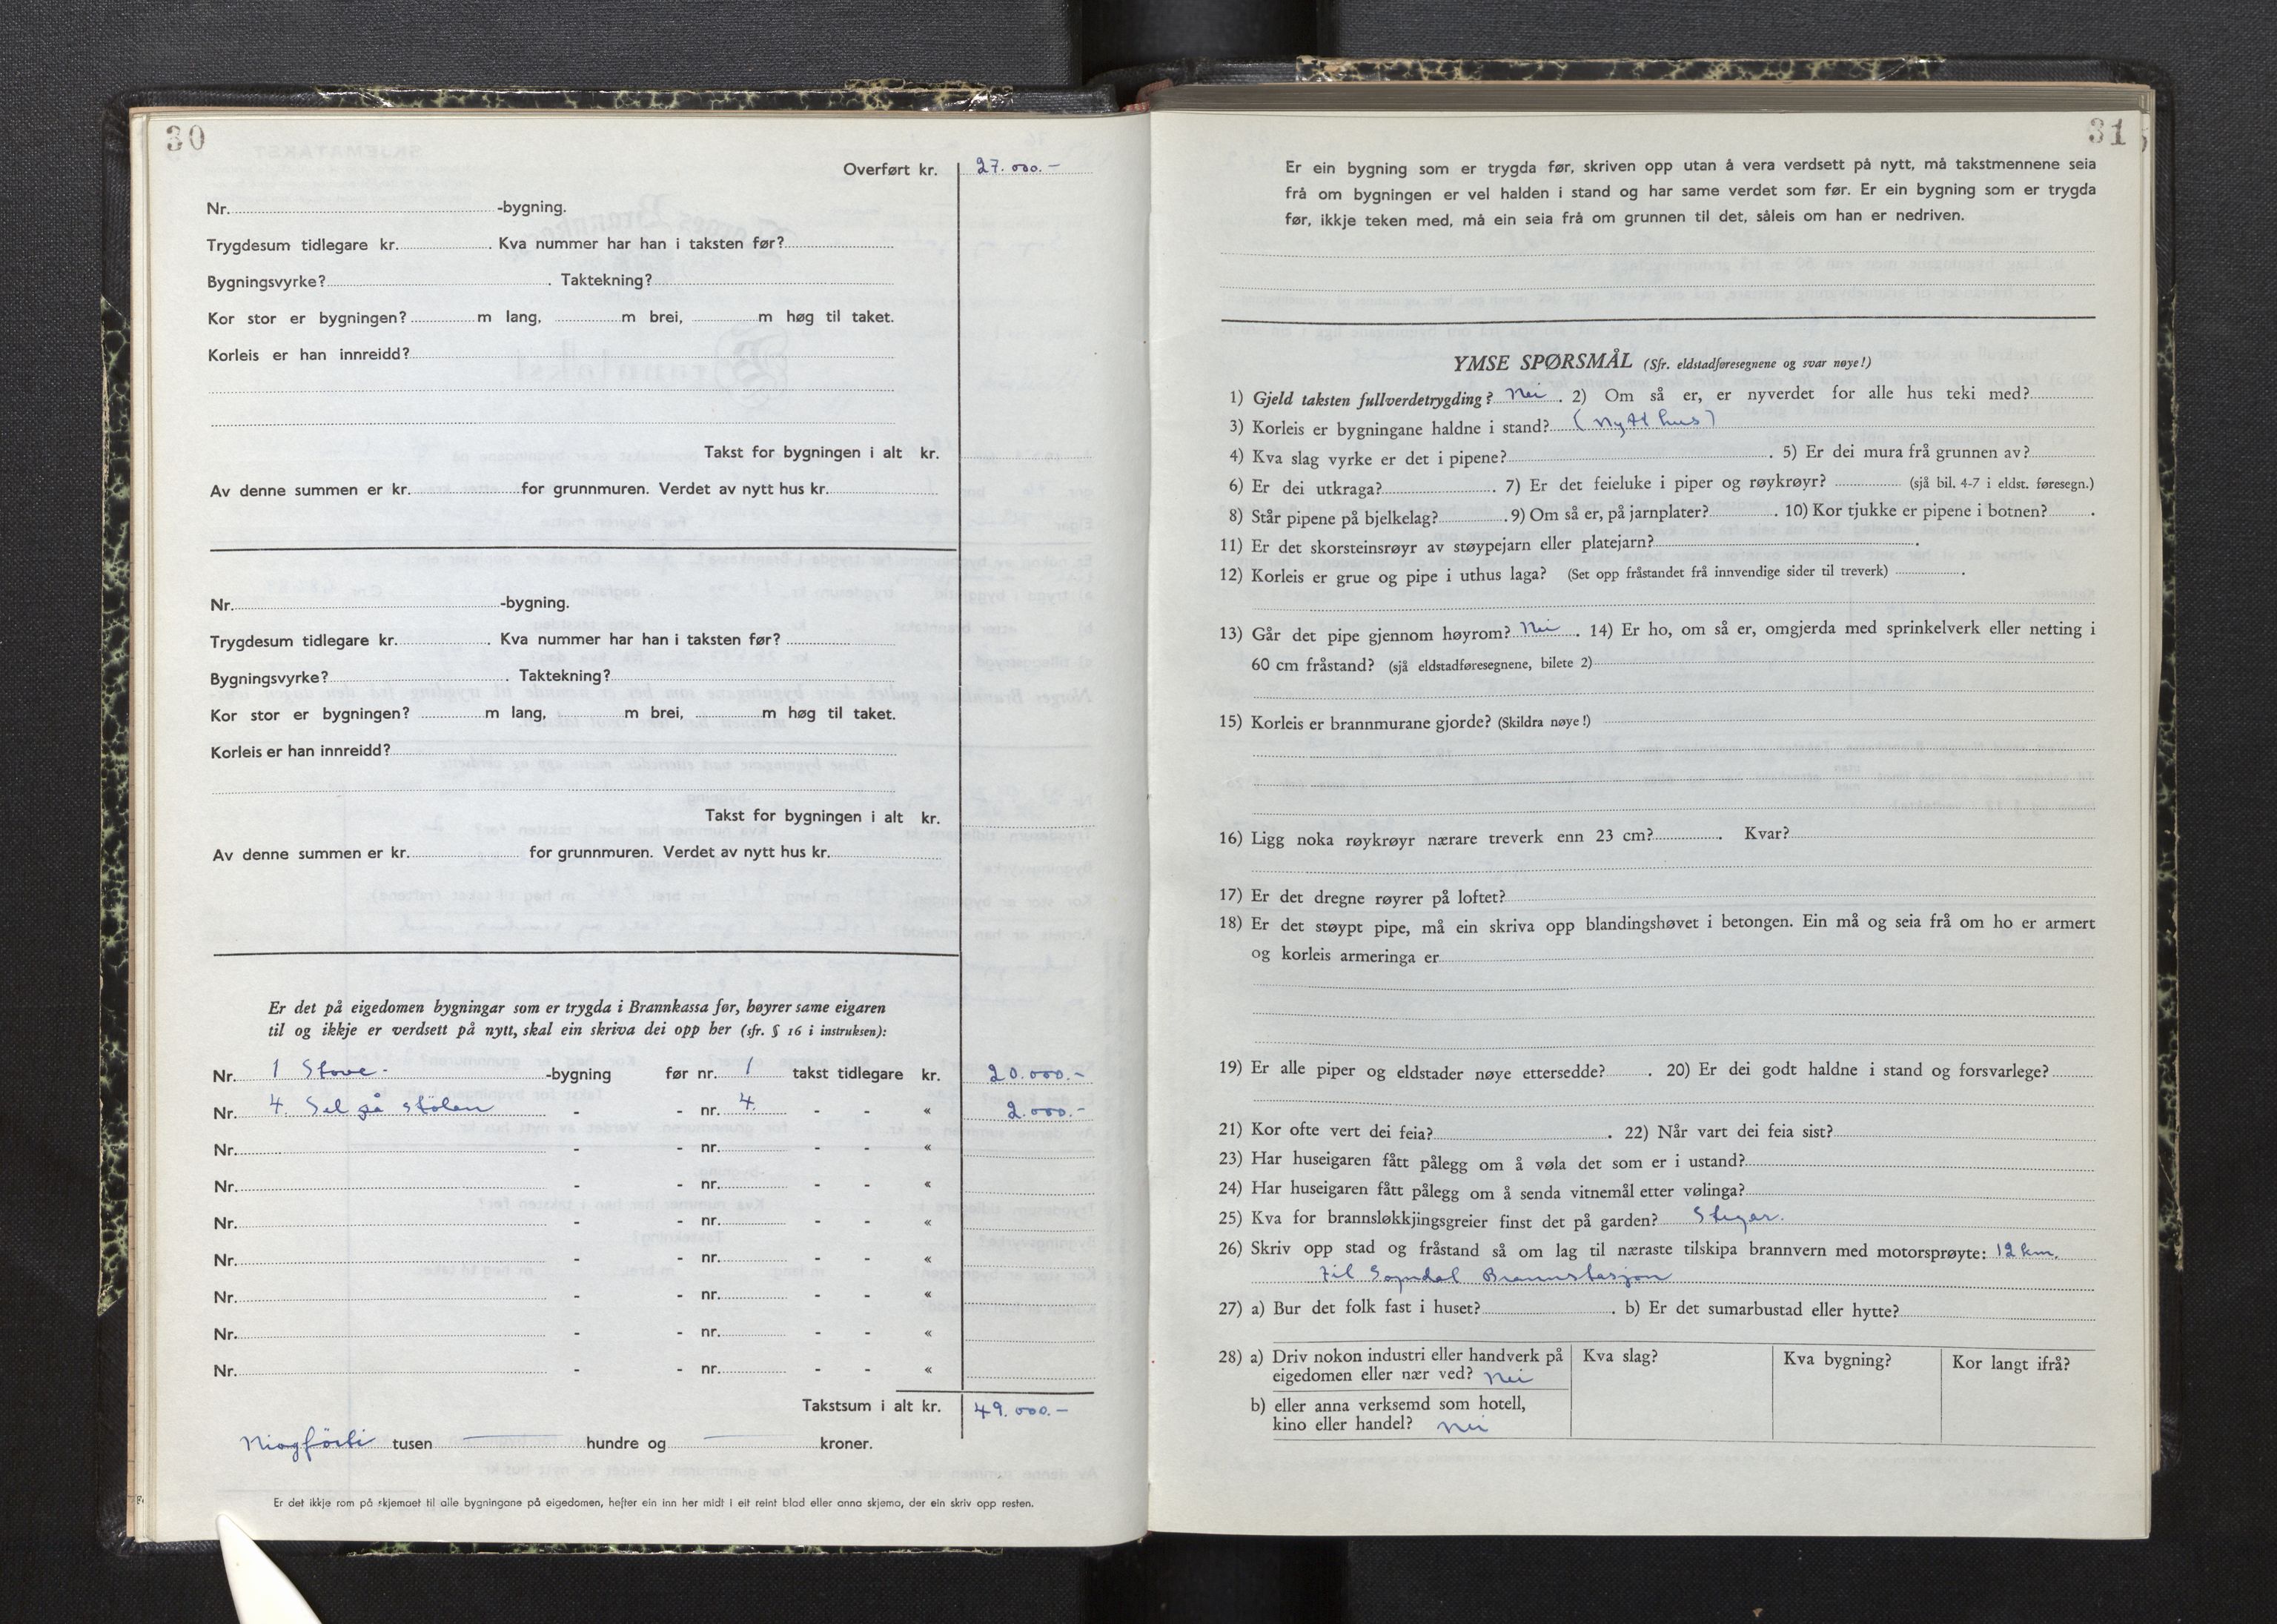 30
Overført kr. 27.000.-
Nr. -bygning.
Trygdesum tidlegare kr. . Kva nummer har han i taksten før?
Bygningsvyrke? . Taktekning?
Kor stor er bygningen? m lang, m brei, m høg til taket.
Korleis er han innreidd?
Takst for bygningen i alt kr.
Av denne summen er kr. for grunnmuren. Verdet av nytt hus kr.
Nr. -bygning.
Trygdesum tidlegare kr. . Kva nummer har han i taksten før?
Bygningsvyrke? . Taktekning?
Kor stor er bygningen? m lang, m brei, m høg til taket.
Korleis er han innreidd?
Takst for bygningen i alt kr.
Av denne summen er kr. for grunnmuren. Verdet av nytt hus kr.
Er det på eigedomen bygningar som er trygda i Brannkassa før, høyrer same eigaren
til og ikkje er verdsett på nytt, skal ein skriva dei opp her (sfr. § 16 i instruksen):
Nr. 1 Stove- -bygning før nr. 1 takst tidlegare kr. 20.000.-
Nr. 4. Sel på stölen - - nr. 4. - - « 2.000.-
Nr. - - nr. - - «
Nr. - - nr. - - «
Nr. - - nr. - - «
Nr. - - nr. - - «
Nr. - - nr. - - «
Nr. - - nr. - - «
Nr. - - nr. - - «
Takstsum i alt kr. 49.000.-
Niogförti tusen — hundre og — kroner.
Er det ikkje rom på skjemaet til alle bygningane på eigedomen, hefter ein inn her midt i eit reint blad eller anna skjema, der ein skriv opp resten.
31
Er ein bygning som er trygda før, skriven opp utan å vera verdsett på nytt, må takstmennene seia
frå om bygningen er vel halden i stand og har same verdet som før. Er ein bygning som er trygda
før, ikkje teken med, må ein seia frå om grunnen til det, såleis om han er nedriven.
YMSE SPØRSMÅL (Sfr. eldstadføresegnene og svar nøye!)
1) Gjeld taksten fullverdetrygding? Nei . 2) Om så er, er nyverdet for alle hus teki med?
3) Korleis er bygningane haldne i stand? (Nytt hus)
4) Kva slag vyrke er det i pipene? . 5) Er dei mura frå grunnen av?
6) Er dei utkraga? . 7) Er det feieluke i piper og røykrøyr? (sjå bil. 4-7 i eldst. føresegn.)
8) Står pipene på bjelkelag? . 9) Om så er, på jarnplater? . 10) Kor tjukke er pipene i botnen? .
11) Er det skorsteinsrøyr av støypejarn eller platejarn? .
12) Korleis er grue og pipe i uthus laga? (Set opp fråstandet frå innvendige sider til treverk) .
13) Går det pipe gjennom høyrom? Nei . 14) Er ho, om så er, omgjerda med sprinkelverk eller netting i
60 cm fråstand? (sjå eldstadføresegnene, bilete 2)
15) Korleis er brannmurane gjorde? (Skildra nøye!)
16) Ligg noka røykrøyr nærare treverk enn 23 cm? . Kvar?
17) Er det dregne røyrer på loftet?
18) Er det støypt pipe, må ein skriva opp blandingshøvet i betongen. Ein må og seia frå om ho er armert
og korleis armeringa er
19) Er alle piper og eldstader nøye ettersedde? . 20) Er dei godt haldne i stand og forsvarlege?
21) Kor ofte vert dei feia? . 22) Når vart dei feia sist?
23) Har huseigaren fått pålegg om å vøla det som er i ustand?
24) Har huseigaren fått pålegg om å senda vitnemål etter vølinga?
25) Kva for brannsløkkjingsgreier finst det på garden? Stigar.
26) Skriv opp stad og fråstand så om lag til næraste tilskipa brannvern med motorsprøyte: 12 km.
til Sogndal Brannstasjon
27) a) Bur det folk fast i huset? . b) Er det sumarbustad eller hytte?
28) a) Driv nokon industri eller handverk på Kva slag? Kva bygning? Kor langt ifrå?
eigedomen eller nær ved? Nei
b) eller anna verksemd som hotell,
kino eller handel? Nei